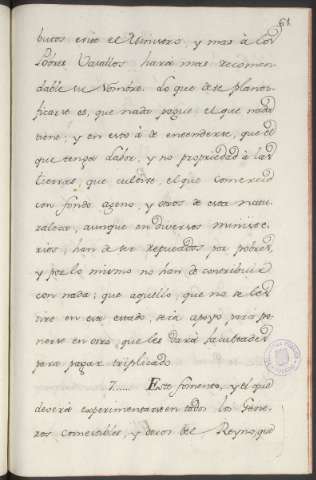 61
butos crió el Universo, y mas á los
Pobres Vasallos hará mas recomen
dable su Nombre. Lo que debe plani
ficarse es, que nada pague el que nada
tiene; y en esto á de entenderse, que el
que tenga labor, y no propriedad á las
tierras, que cultive, el que comercia
con fondo ageno, y otros de esta natu
raleza, aunque en diversos ministe
rios, han de ser reputados por pobres,
y por lo mismo no han de contribuir
con nada; que aquello, que no se les
tire en este estado, será apoyo para po
nerse en otro, que les dará facultades
para pagar triplicado.
7..... Este fomento, y el que
deverá experimentarse en todos los Gene
ros comestibles, y demas del Reyno, que